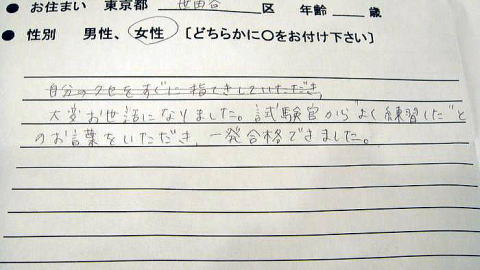 ● お住まい 東京都 世田谷 区 年齢 歳
● 性別 男性、女性 [どちらかに〇をお付け下さい]
自分のクセをすぐに指てきしていただき、
大変お世話になりました。試験官から"よく練習した"と
のお言葉をいただき、一発合格できました。